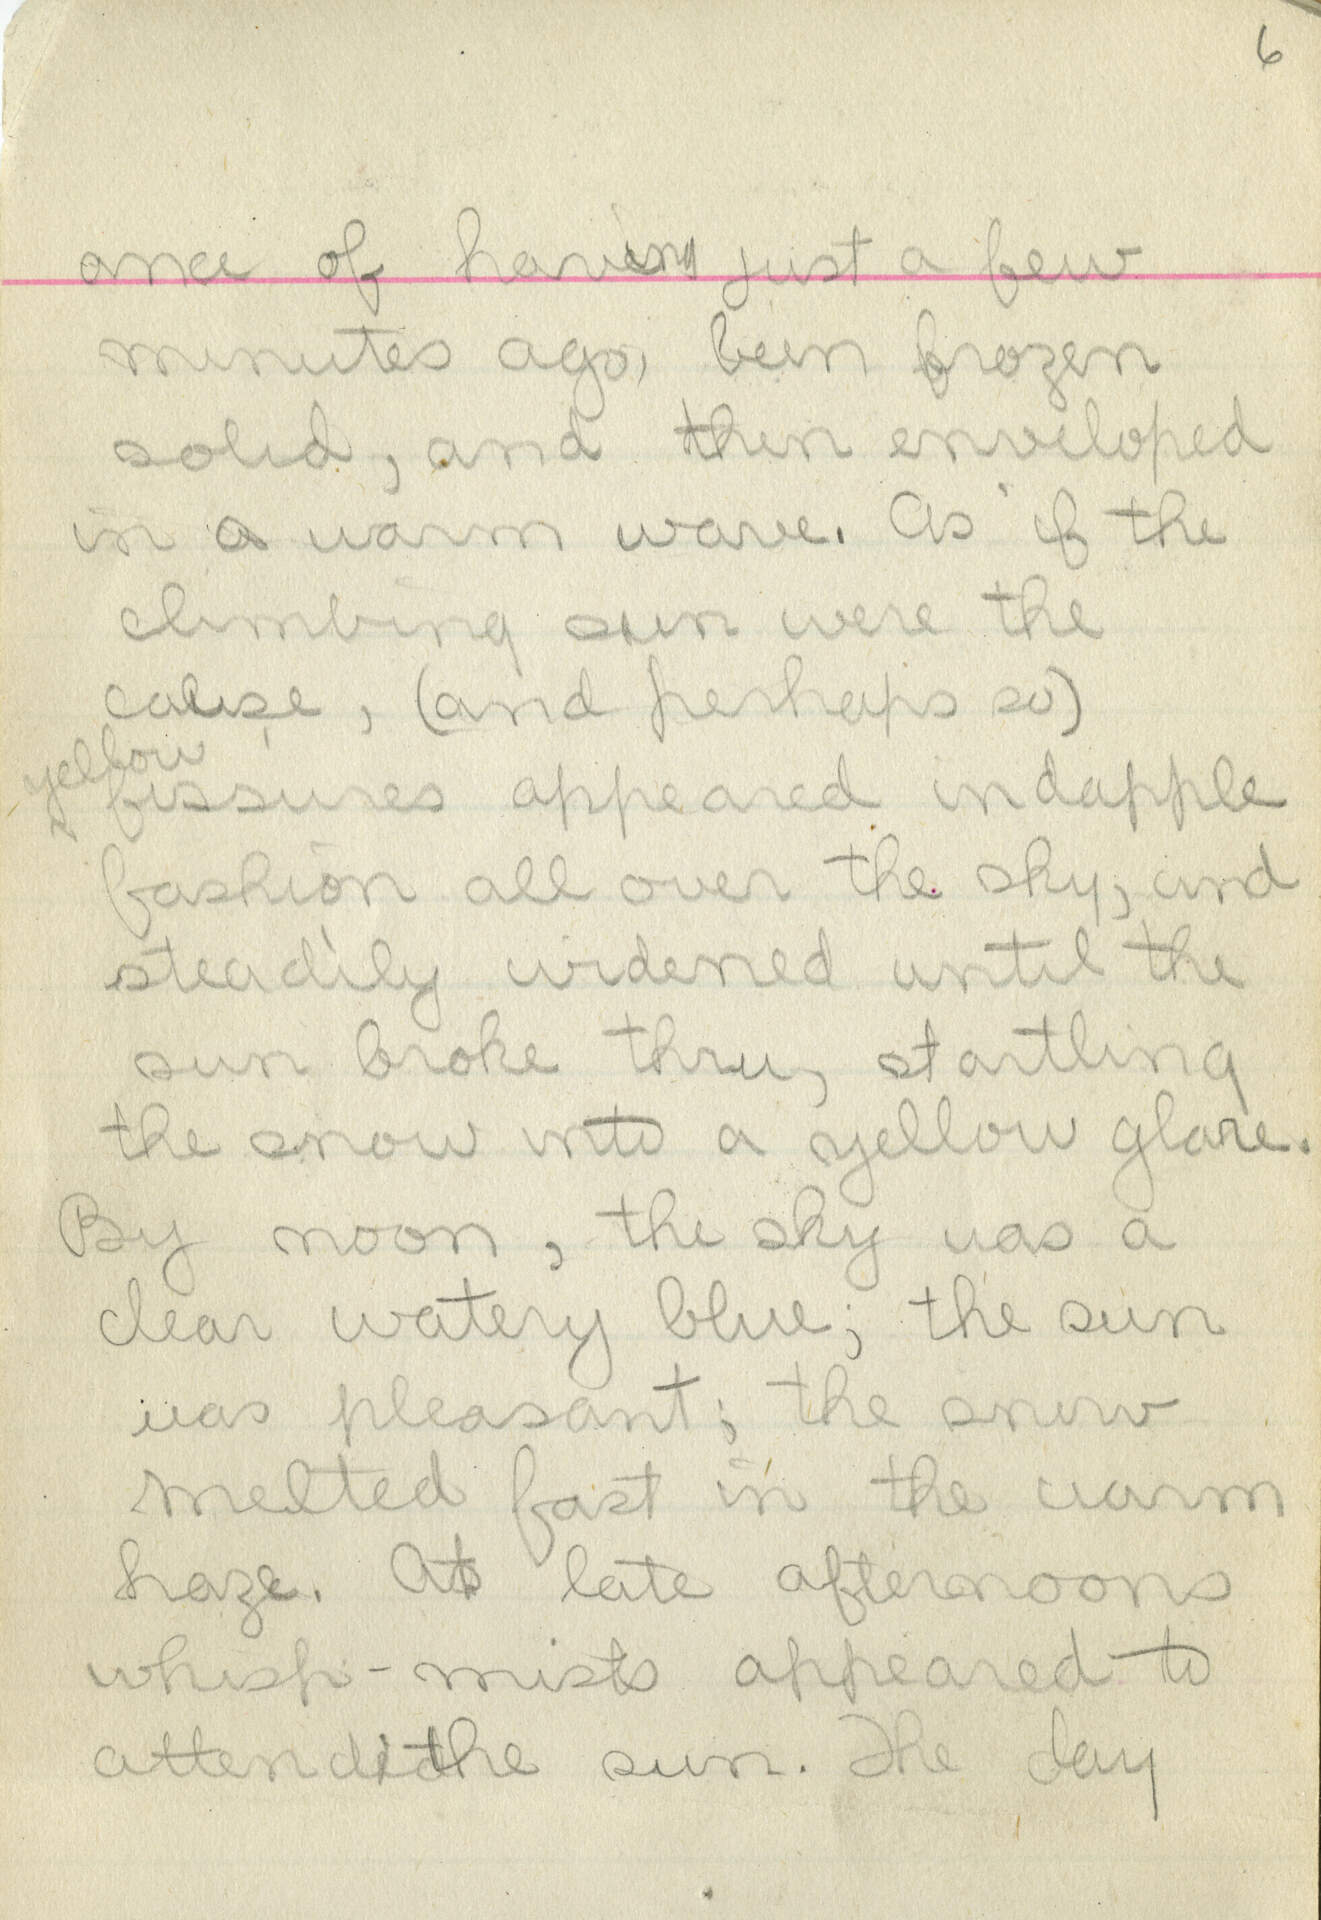 6
ance of having just a few
minutes ago, been frozen
solid, and then enveloped
in a warm wave. As if the
climbing sun were the
cause, (and perhaps so)
yellow
fissures appeared in dapple
fashion all over the sky, and
steadily widened until the
sun broke thru, startling
the snow into a yellow glare.
By noon, the sky was a
clear watery blue; the sun
was pleasant; the snow
melted fast in the warm
haze. At late afternoons
whisp-mists appeared to
attend the sun. The day